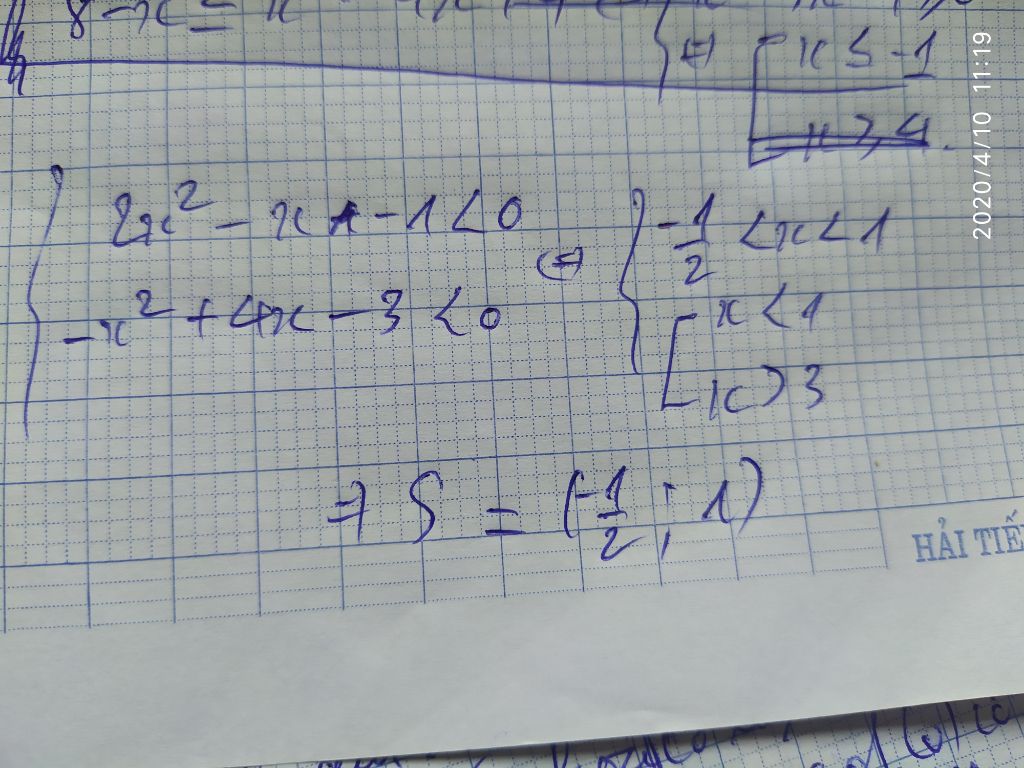 8 - x = x
⇔ [ x ≤ -1
x ≥ 4
{ 2x² - x - 1 < 0
-x² + 4x - 3 < 0
⇔ { -1/2 < x < 1
[ x < 1
x > 3
⇒ S = (-1/2 ; 1)
HẢI TIẾ
2020/4/10 11:19